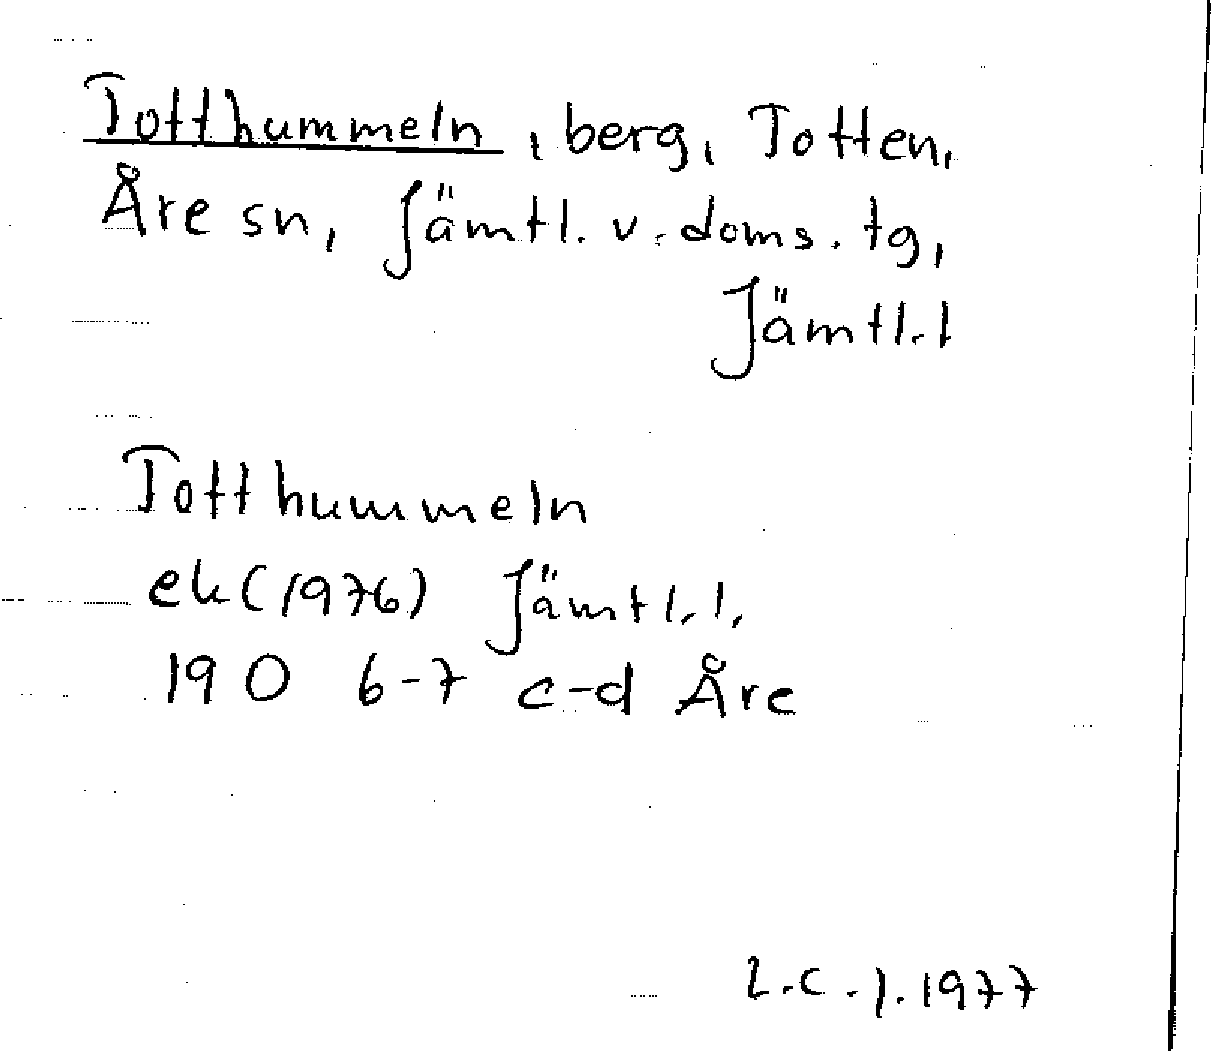 Totthummeln, berg, Totten,
Åre sn, Jämtl. v. doms. tg,
Jämtl. l
Totthummeln
ek (1976) Jämtl. l.
19 O 6-7 c-d Åre
L.C.J. 1977